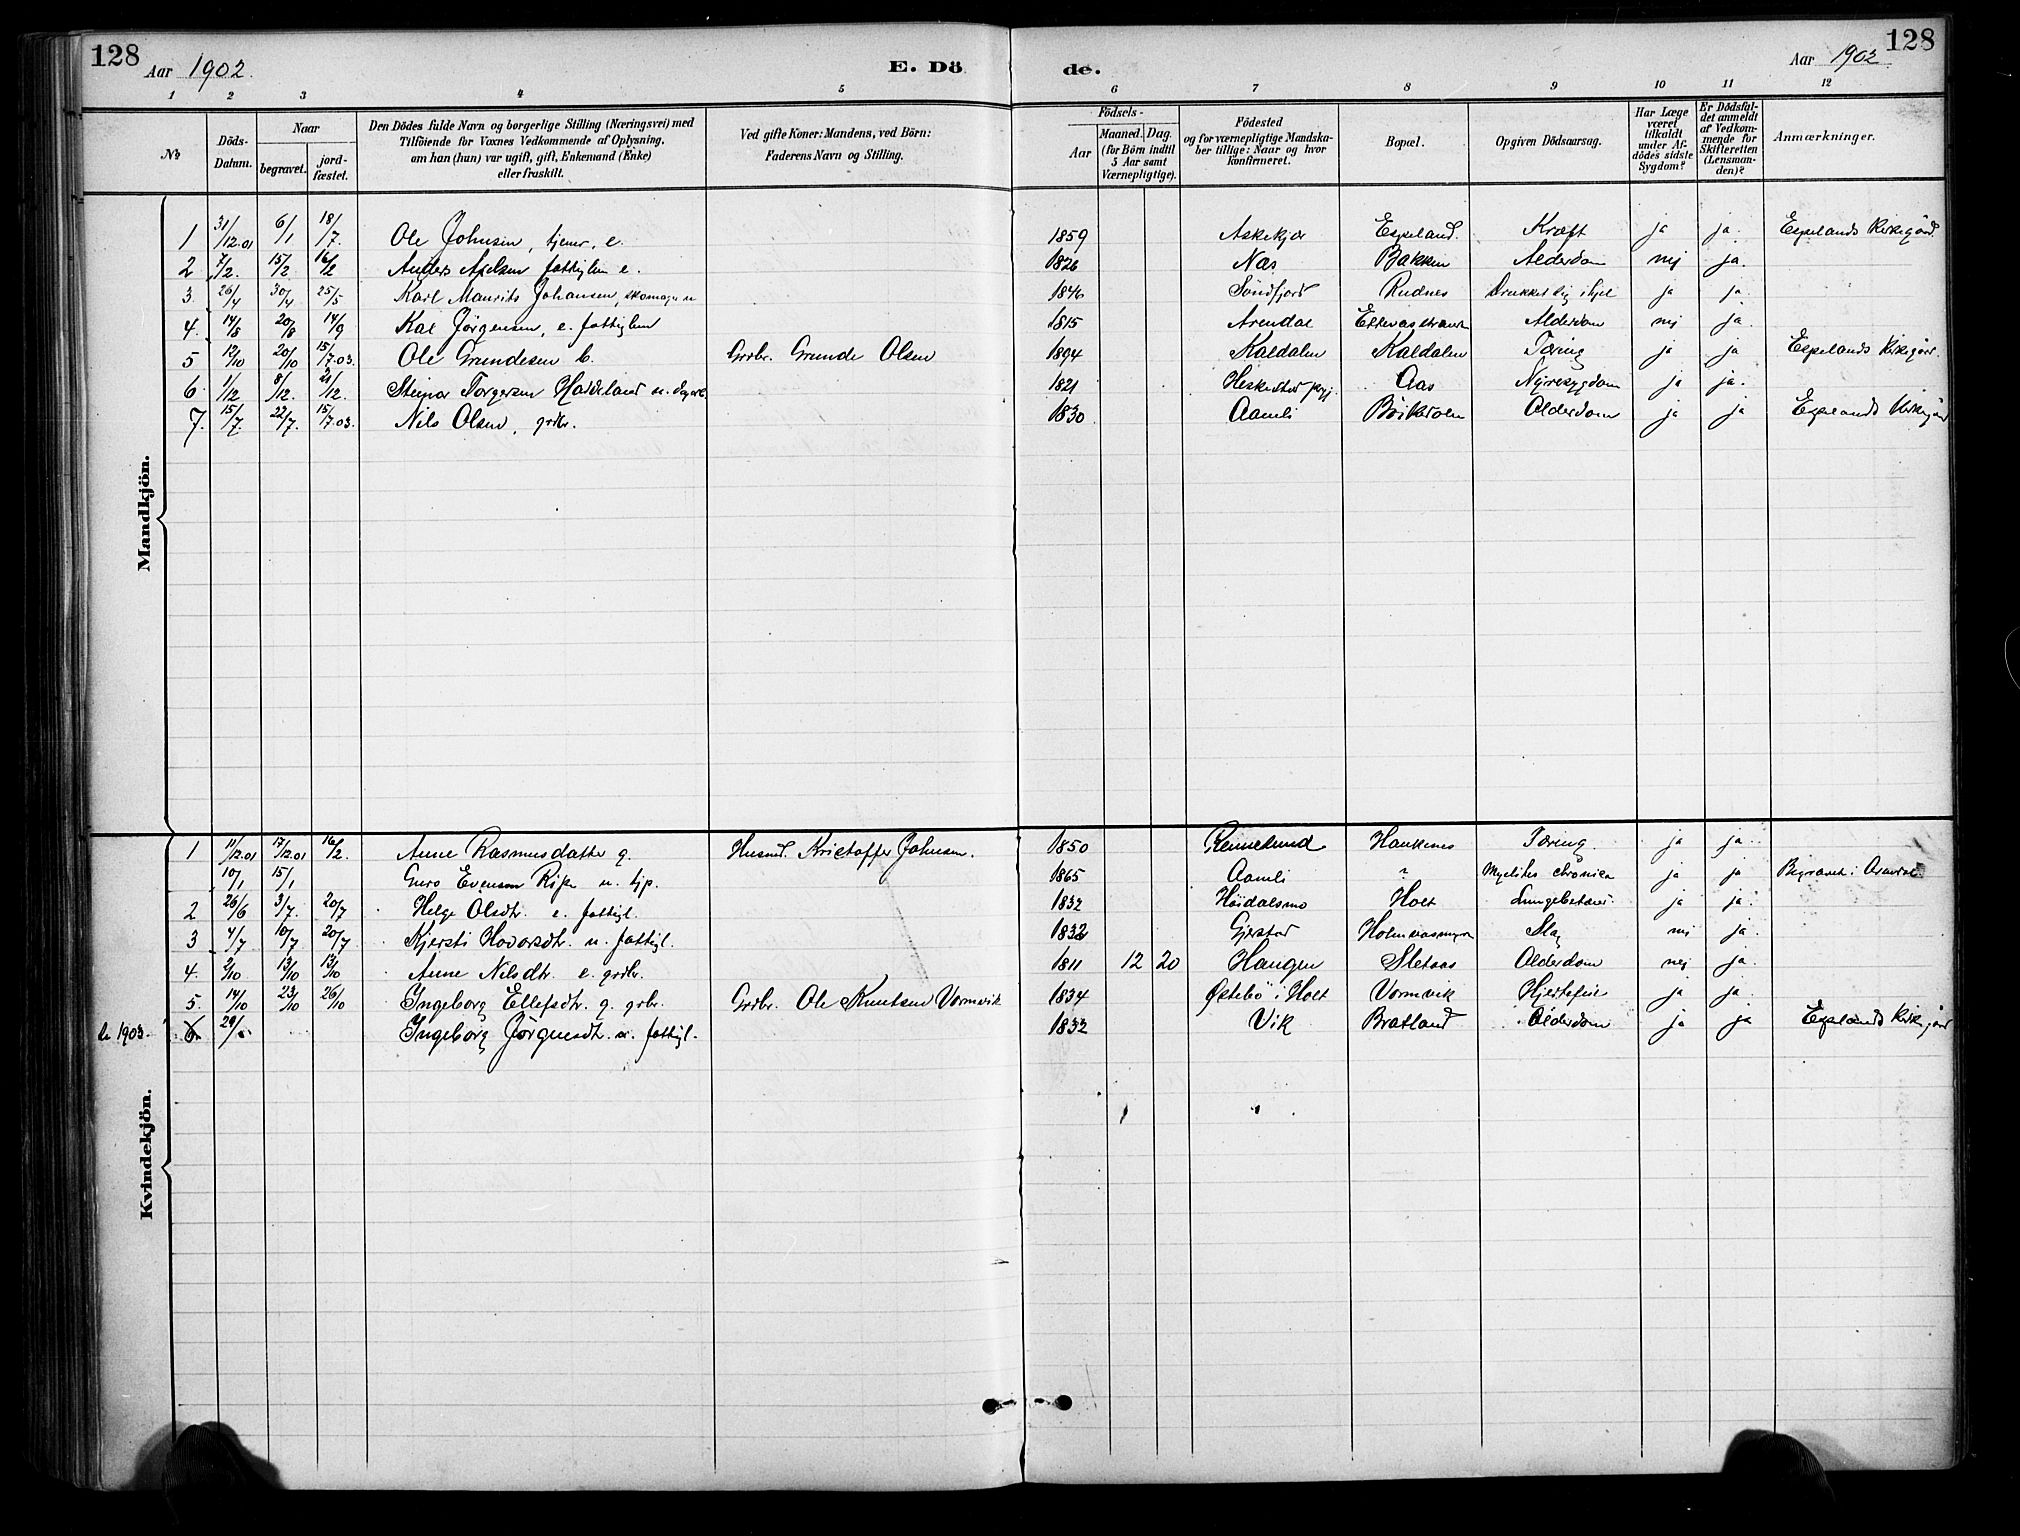 128 Aar 1902. E. Dö de. Aar 1902 128
1 2 3 4 5 6 7 8 9 10 11 12
No
Döds-Datum.
Naar
begravet. jord-fæstet.
Den Dödes fulde Navn og borgerlige Stilling (Næringsvei) med
Tilföiende for Voxnes Vedkommende af Oplysning,
om han (hun) var ugift, gift, Enkemand (Enke)
eller fraskilt.
Ved gifte Koner: Mandens, ved Börn:
Faderens Navn og Stilling.
Födsels-
Aar
Maaned. Dag.
(for Börn indtil
5 Aar samt
Værnepligtige).
Födested
og for værnepligtige Mandska-
ber tillige: Naar og hvor
konfirmeret.
Bopæl.
Opgiven Dödsaarsag.
Har Læge
været
tilkaldt
under Af-
dödes sidste
Sygdom?
Er Dödsfal-
det anmeldt
af Vedkom-
mende for
Skifteretten
(Lensman-
den)?
Anmærkninger.
Mandkjön.
1 31/12.01 6/1 18/7. Ole Johnsen, tjener, e. 1859 Askekjær Espeland. Kræft ja ja. Espelands Kirkegård.
2 7/2. 15/2 16/2 Anders Axelsen fattiglem e. 1826 Næs Bakken Alderdom nej ja.
3. 26/4 30/4 25/5 Karl Maurits Johansen, skomager u 1846 Söndfjord Rudnes Drukket sig ihjel ja ja
4. 14/8 20/8 14/9 Jörgensen, e. fattiglem 1815 Arendal Alderdom nej ja.
5 12/10 20/10 15/7.03. Ole Grundesen b. Grdbr. Grunde Olsen 1894 Kaldalen Kaldalen Tæring ja ja Espelands Kirkegård.
6. 1/12 8/12. 21/12. Torgersen Haddeland 1821 Heskestad prgj. Aas Nyresygdom ja ja.
7. 15/7. 22/7. 15/7.03. Nils Olsen, grdbr. 1830 Aamli Alderdom ja ja Espelands Kirkegård
Kvindekjön.
1 11/12.01 17/12.01 16/2. Anne Rasmusdatter g. Husmd. Kristoffer Johnsen. 1850 Haukenes Tæring ja ja
10/1 15/1 Guro Evensen u. tjp. 1865 Aamli " Myelites chronica ja ja Begravet i Arendal.
2 26/6 3/7. 20/7 Helge Olsdtr. e. fattigl. 1832 Höidalsmo Holt Lungebetæn. ja ja
3 4/7 10/7 20/7 Kjersti Hovorsdtr. u. fattigl. 1832 Gjerstad Slag nej ja.
4. 2/10 13/10 13/10 Anne Nilsdtr. e. grdbr. 1811 12 20 Haugen Sletaas Alderdom nej ja.
5. 14/10 23/10 26/10 Ingeborg Ellefsdtr. g. grbr. Grdbr. Ole Knutsen Vormvik 1834 Østebö i Holt Vormvik Hjertefeil ja ja.
til 1903. 6 29/ Ingeborg Jörgensdtr. u. fattigl. 1832 Vik Bratland Alderdom ja ja Espelands Kirkegård